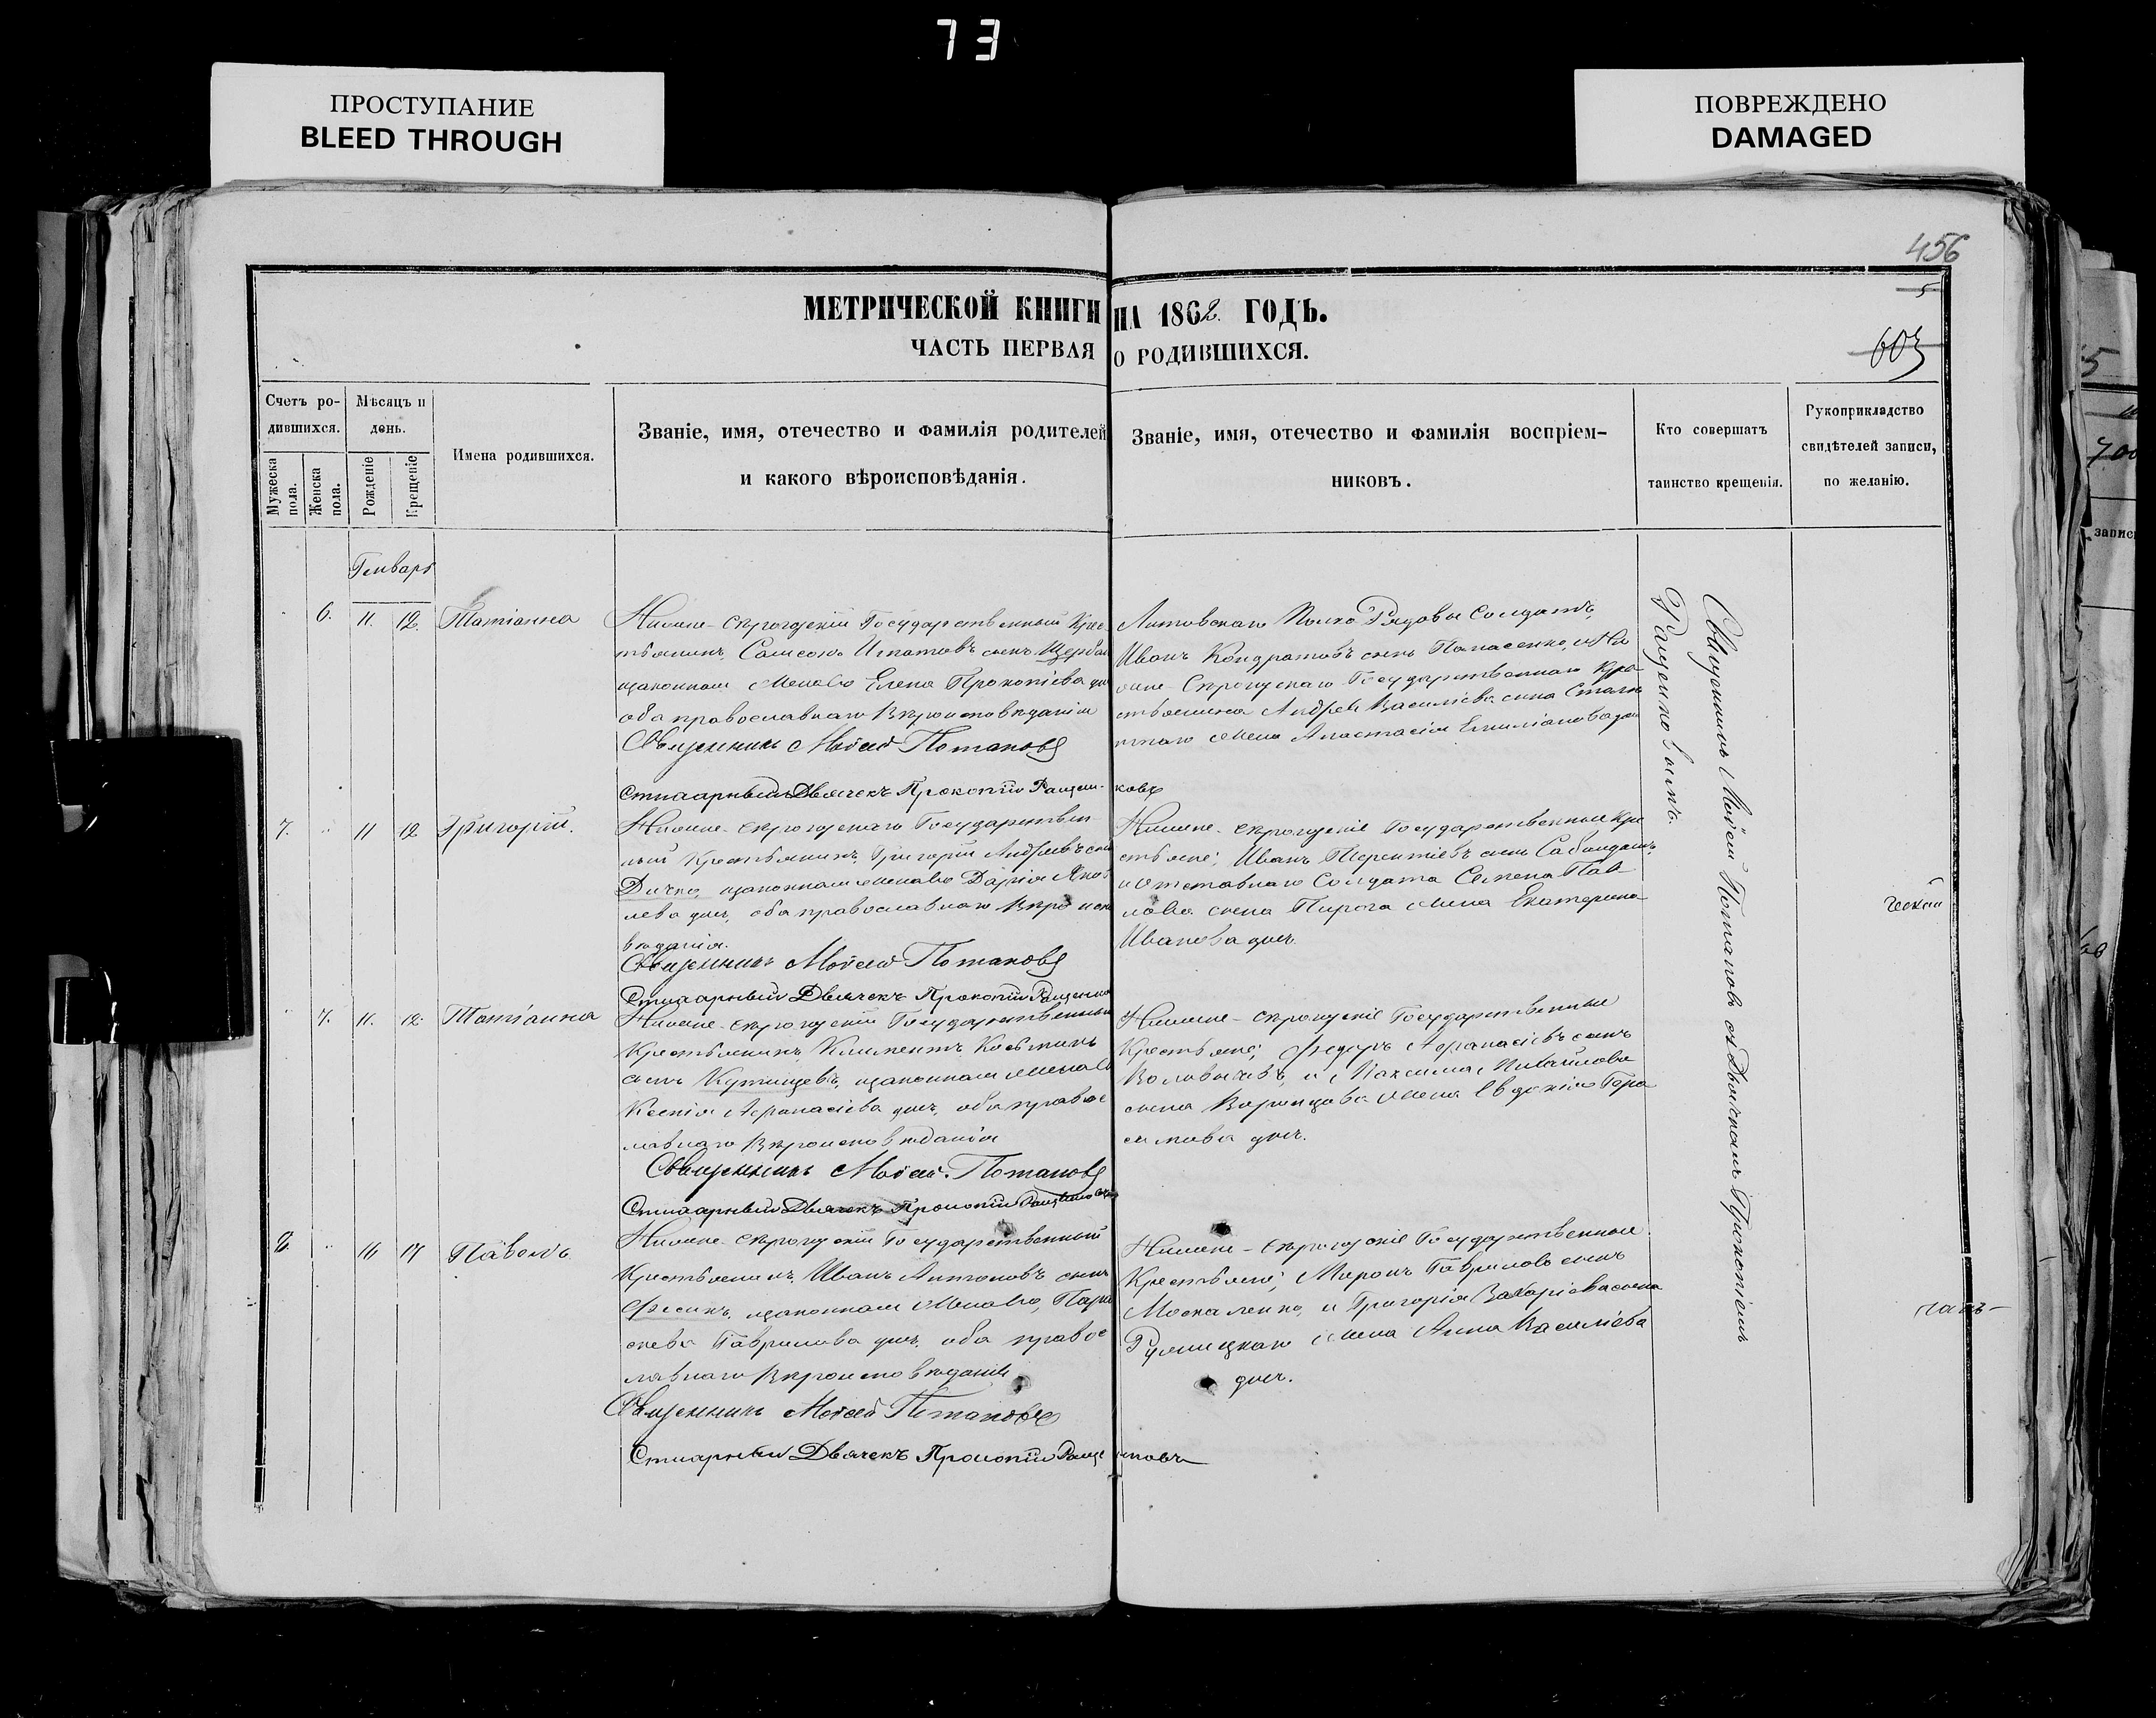 73
ПРОСТУПАНИЕ
BLEED THROUGH
ПОВРЕЖДЕНО
DAMAGED
456
5
603
МЕТРИЧЕСКОЙ КНИГИ НА 1862 ГОДЪ.
ЧАСТЬ ПЕРВАЯ О РОДИВШИХСЯ.
Счетъ ро-
дившихся.
Мужеска
пола.
Женска
пола.
Мѣсяцъ и
день.
Рожденіе
Крещеніе
Имена родившихся.
Званіе, имя, отечество и фамилія родителей
и какого вѣроисповѣданія.
Званіе, имя, отечество и фамилія воспріем-
никовъ.
Кто совершатъ
таинство крещенія.
Рукоприкладство
свидѣтелей записи,
по желанію.
Генварь
6. 11. 12. Татіанна
Государственный Крес
тьянинъ, Самсонъ Игнатовъ сынъ Щербак
законная Жена его Елена Прокопіева дч
оба православнаго Вѣроисповѣданія
Священникъ Мойсей Потаповъ
Стихарный Дьячекъ Прокопій Ращен-
ковъ
Литовскаго Полка Рядовы Солдатъ,
Иванъ Кондратовъ сынъ Панасенко, и Ни
Государственнаго Кре
стьянина Андрея Василіева сына
Жена Анастасія Емиліанова дч
7. 11 12 Григорій.
Государствен
ный Крестьянинъ, Григорій Андреевъ сын
Дичко, законная Жена его Дарія Яков
лева дчь, оба православнаго Вѣроиспо
вѣданія.
Священникъ Мойсей Потаповъ
Стихарный Дьячекъ Прокопій Ращенко
Государственные Кре
стьяне; Иванъ Терентіевъ сынъ
и отставнаго Солдата Семена Пав
лова сына Пирога Жена Екатерина
Иванова дчь.
7. 11. 12. Татіанна
Государственный
Крестьянинъ Климентъ Косьминъ
сынъ законная Жена его
Ксенія Афанасіева дчь, оба правос
лавнаго Вѣроисповѣданія
Священникъ Мойсей Потаповъ
Стихарный Дьячекъ Прокопій Ращенковъ
Государственные
Крестьяне; Федоръ Афанасіевъ сынъ
и Максима Михайлова
сына Воронцова Жена Евдокія Гера
симова дчь.
8. 16 17 Павелъ
Государственный
Крестьянинъ, Иванъ Антоновъ сынъ
Фесикъ, законная Жена его, Парас
кева Гаврилова дчь, оба правос
лавнаго Вѣроисповѣданія
Священникъ Мойсей Потаповъ
Стихарный Дьячекъ Прокопій Ращенковъ
Государственные
Крестьяне; Миронъ Гавриловъ сынъ
Москаленко, и Григорія Захаріева сына
Жена Анна Василіева
дчь.
Священникъ Мойсей Потаповъ съ Дьячкомъ Прокопіемъ
Ращенковымъ.